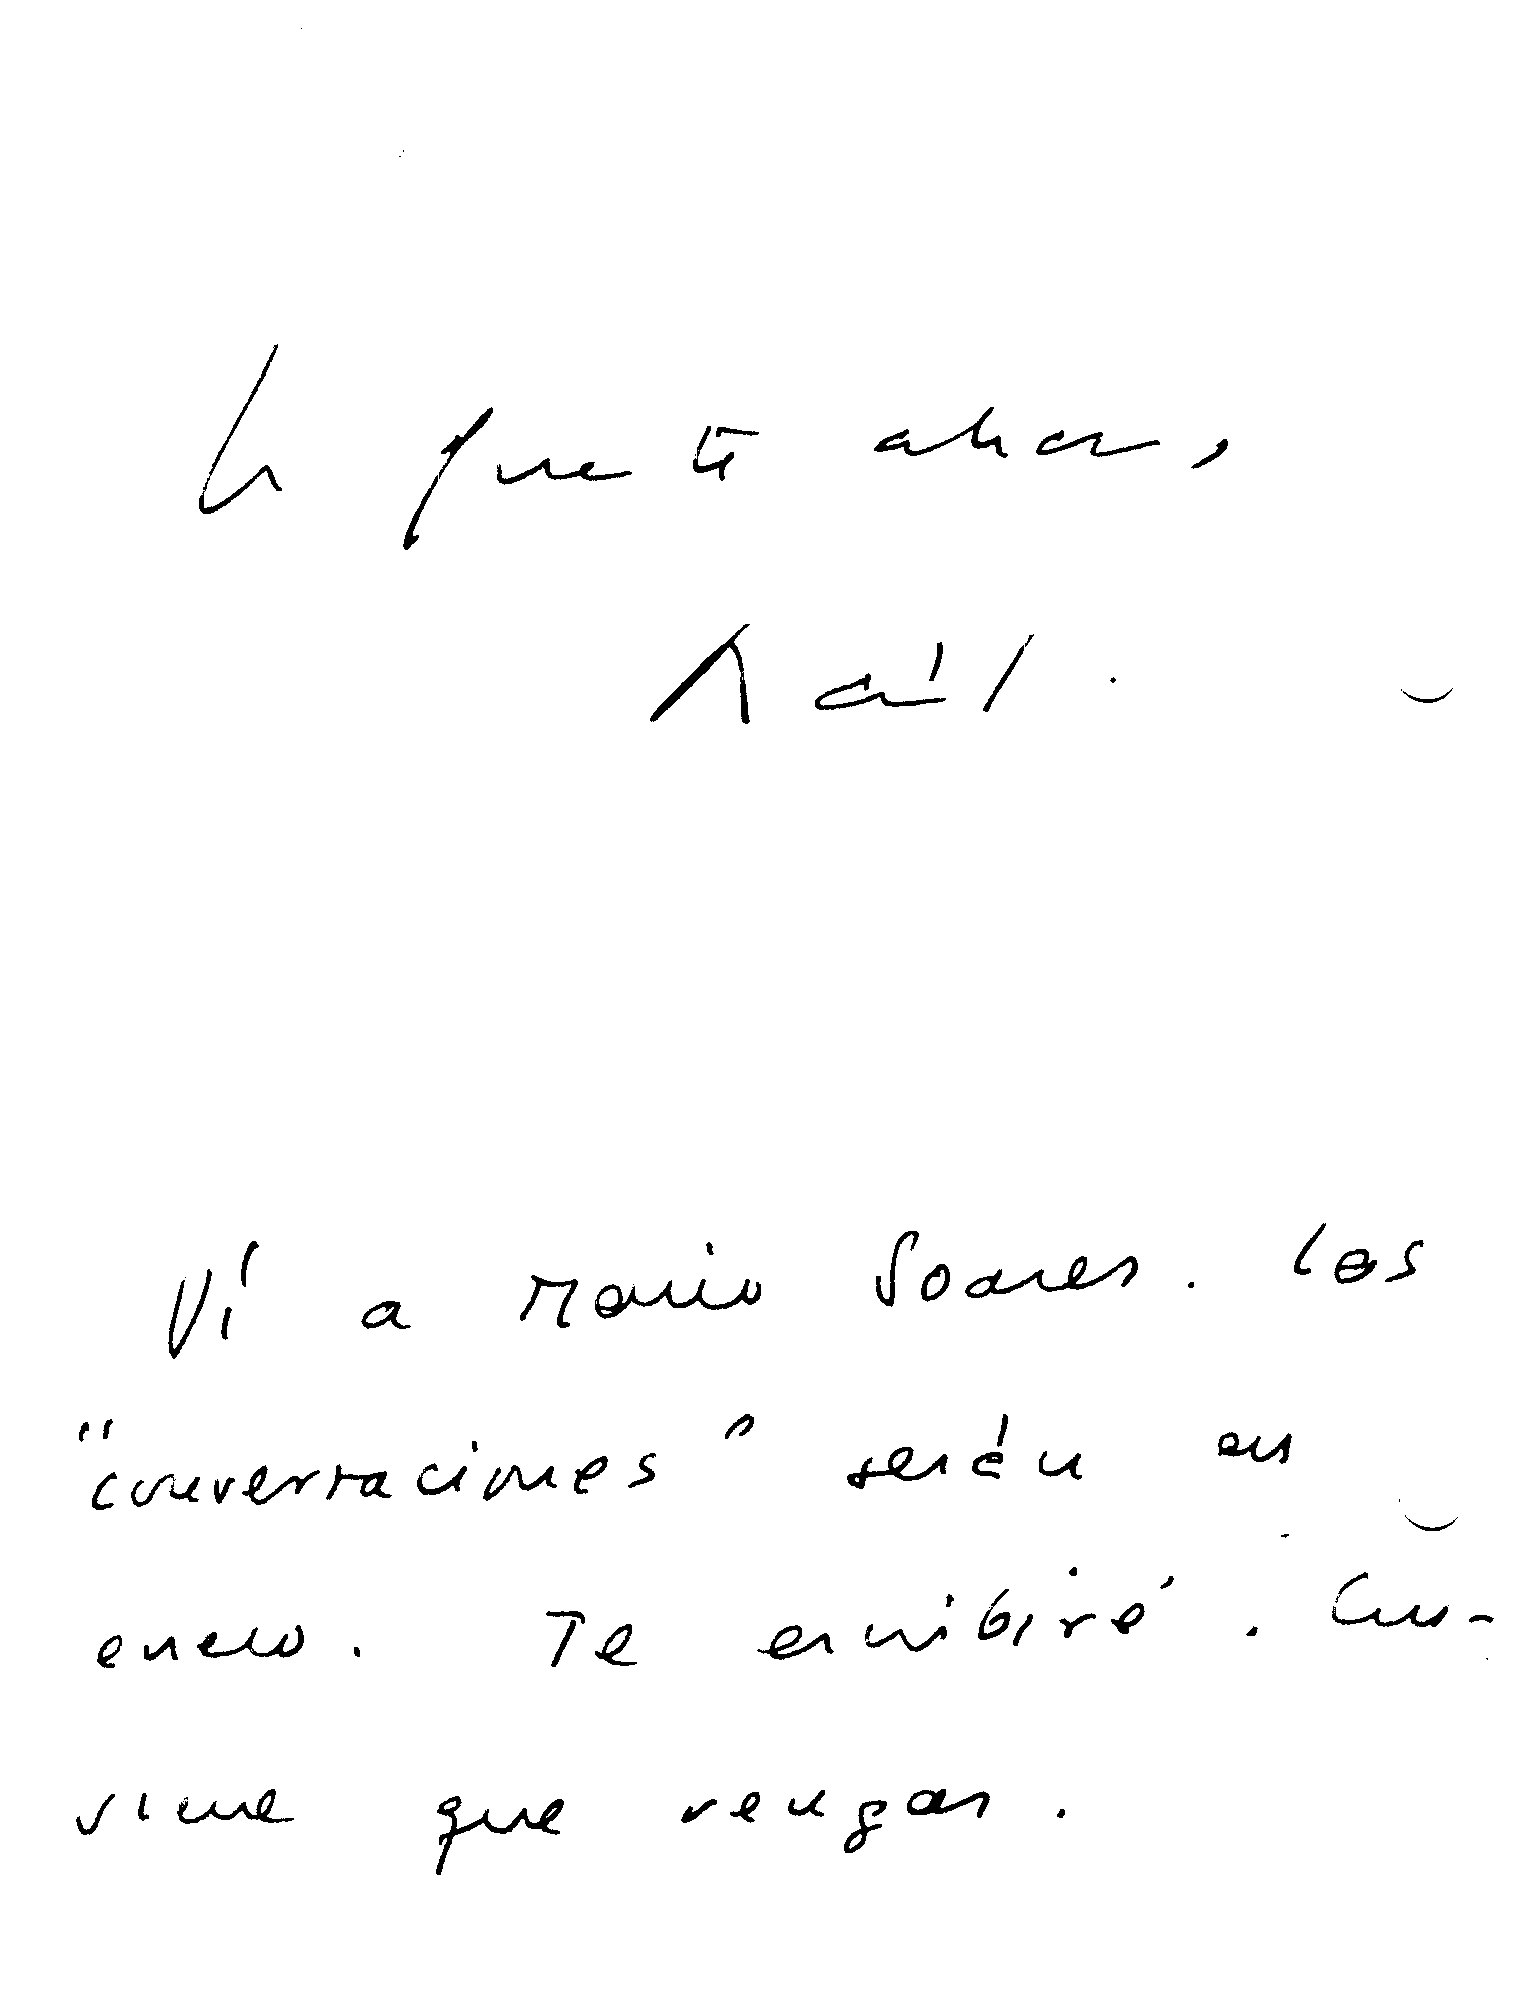 que te
Raúl.
Ví a Mario Soares. Las
"conversaciones" serán en
enero. Te escribiré. Con-
viene que vengas.